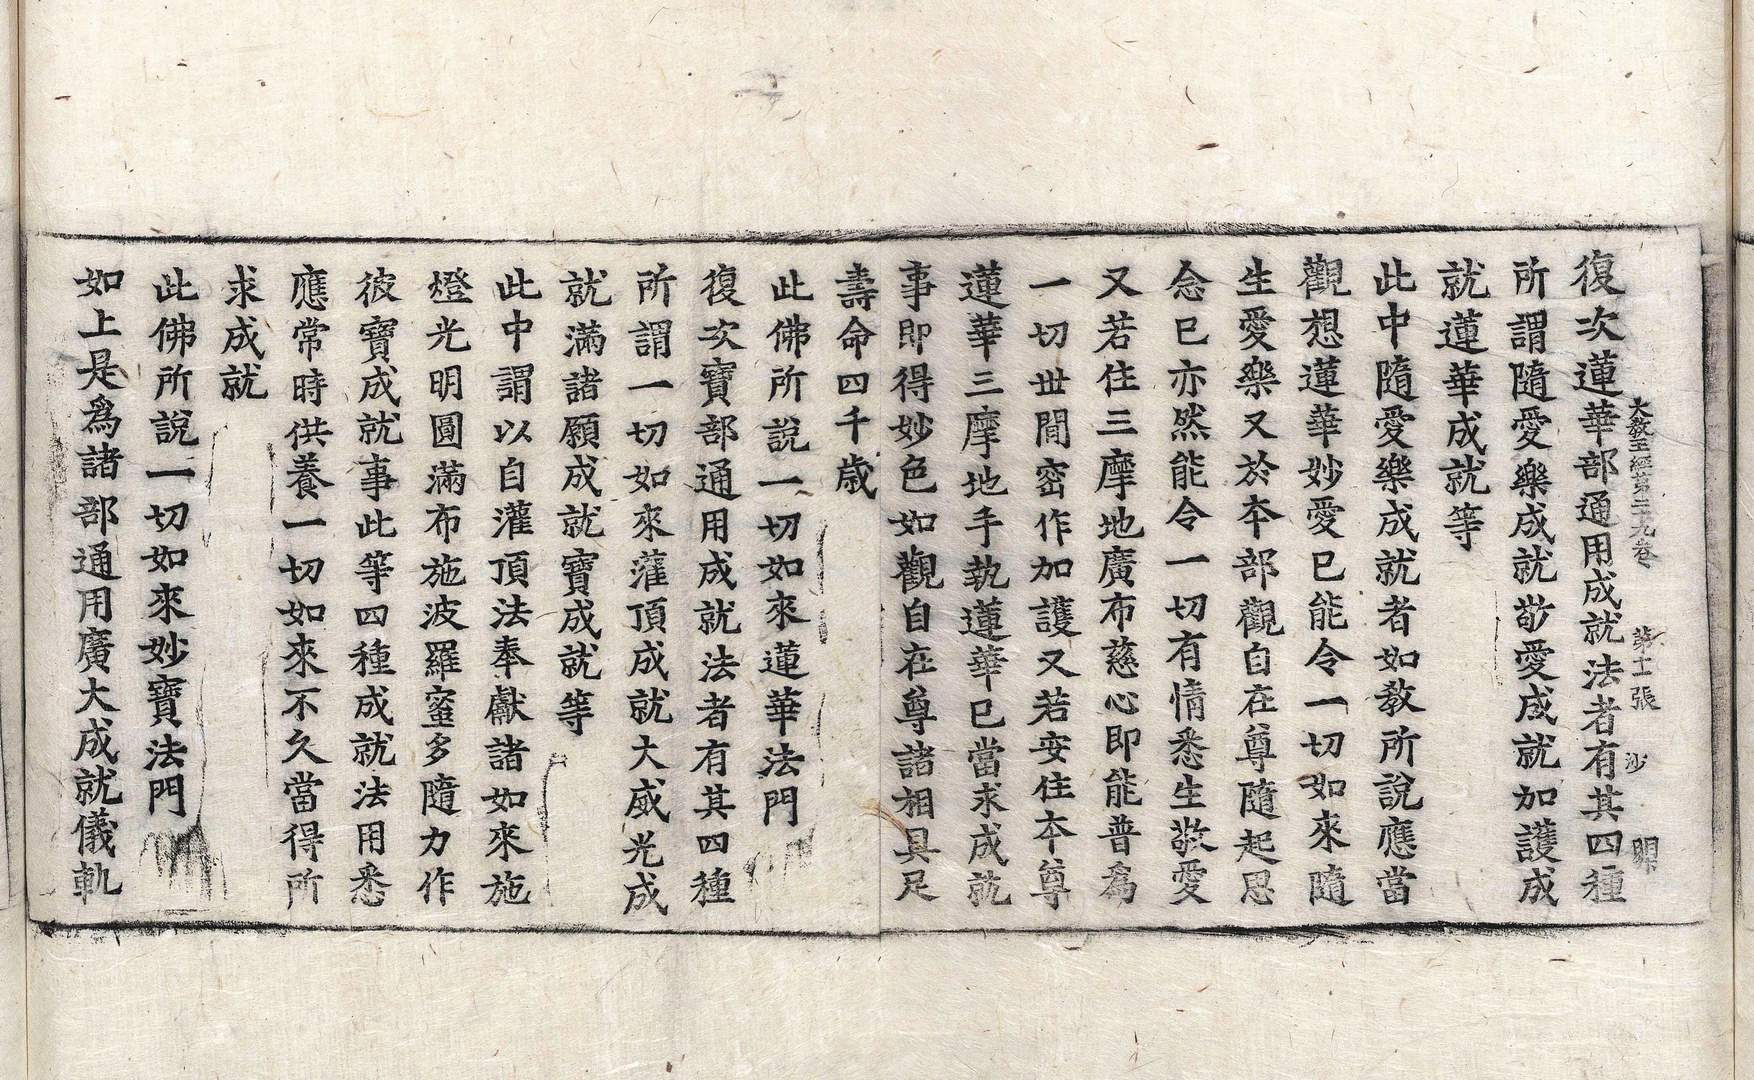 大教王經第二十九卷　第十一張　沙　明
復次蓮華部通用成就法者有其四種
所謂隨愛樂成就敬愛成就加護成
就蓮華成就等
此中隨愛樂成就者如教所說應當
觀想蓮華妙愛已能令一切如來隨
生愛樂又於本部觀自在尊隨起思
念已亦然能令一切有情悉生敬愛
又若住三摩地廣布慈心即能普為
一切世間密作加護又若安住本尊
蓮華三摩地手執蓮華已當求成就
事即得妙色如觀自在尊諸相具足
壽命四千歲
此佛所說一切如來蓮華法門
復次寶部通用成就法者有其四種
所謂一切如來灌頂成就大威光成
就滿諸願成就寶成就等
此中謂以自灌頂法奉獻諸如來施
燈光明圓滿布施波羅蜜多隨力作
彼寶成就事此等四種成就法用悉
應常時供養一切如來不久當得所
求成就
此佛所說一切如來妙寶法門
如上是為諸部通用廣大成就儀軌